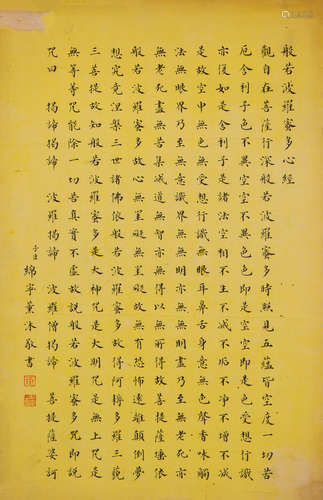 般若波羅蜜多心經
觀自在菩薩行深般若波羅蜜多時照見五蘊皆空度一切苦
厄舍利子色不異空空不異色色即是空空即是色受想行識
亦復如是舍利子是諸法空相不生不滅不垢不淨不增不減
是故空中無色無受想行識無眼耳鼻舌身意無色聲香味觸
法無眼界乃至無意識界無無明亦無無明盡乃至無老死亦
無老死盡無苦集滅道無智亦無得以無所得故菩提薩埵依
般若波羅蜜多故心無罣礙無罣礙故無有恐怖遠離顛倒夢
想究竟涅槃三世諸佛依般若波羅蜜多故得阿耨多羅三藐
三菩提故知般若波羅蜜多是大神咒是大明咒是無上咒是
無等等咒能除一切苦真實不虛故說般若波羅蜜多咒即說
咒曰 揭諦揭諦 波羅揭諦 波羅僧揭諦 菩提薩婆訶
子臣綿寧薰沐敬書